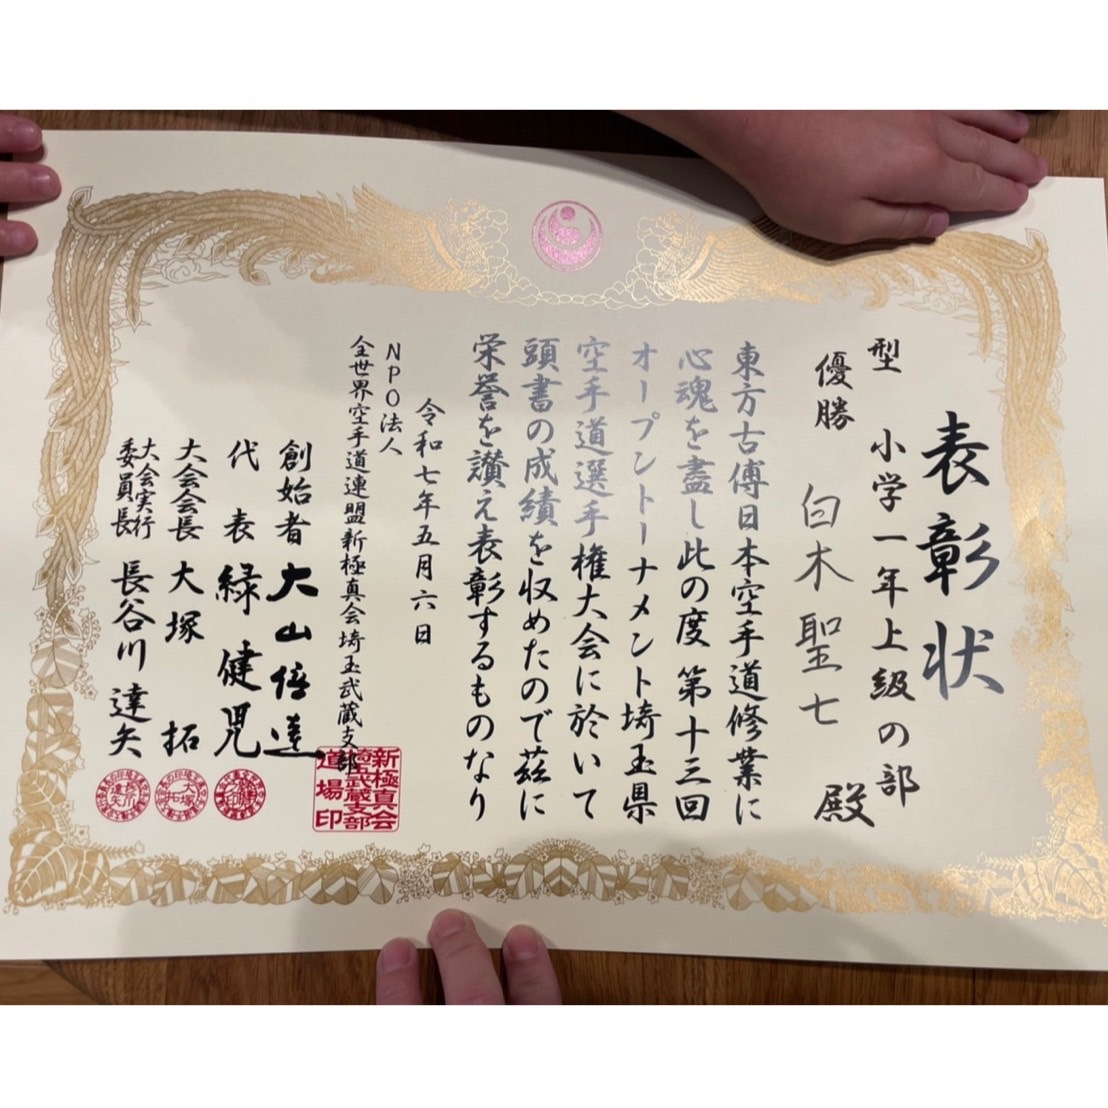 表彰状
型 小学一年上級の部
優勝 白木聖七 殿
東方古傅日本空手道修業に
心魂を盡し此の度第十三回
オープントーナメント埼玉県
空手道選手権大会に於いて
頭書の成績を収めたので茲に
栄誉を讃え表彰するものなり
令和七年五月六日
NPO法人
全世界空手道連盟新極真会埼玉武蔵支部
新極真会
埼玉武蔵支部
道場印
創始者 大山倍達
代表 緑健児
大会会長 大塚拓
大会実行
委員長 長谷川達矢